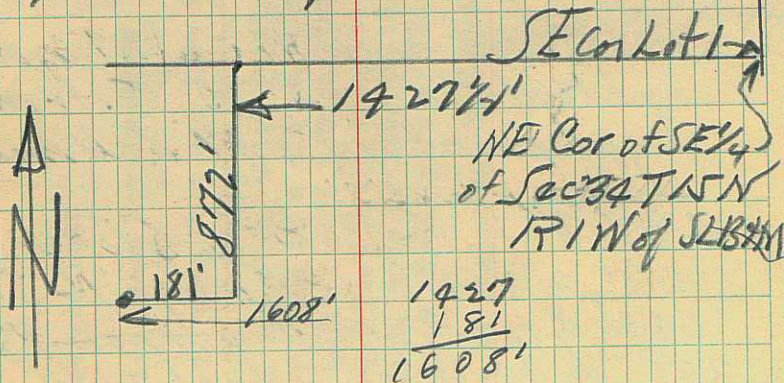 SE Cor Lot 1
1427½'
NE Cor of SE¼
of Sec 34 T15N
R1W of SLB&M
872'
N
181'
1608'
1427
181
1608'